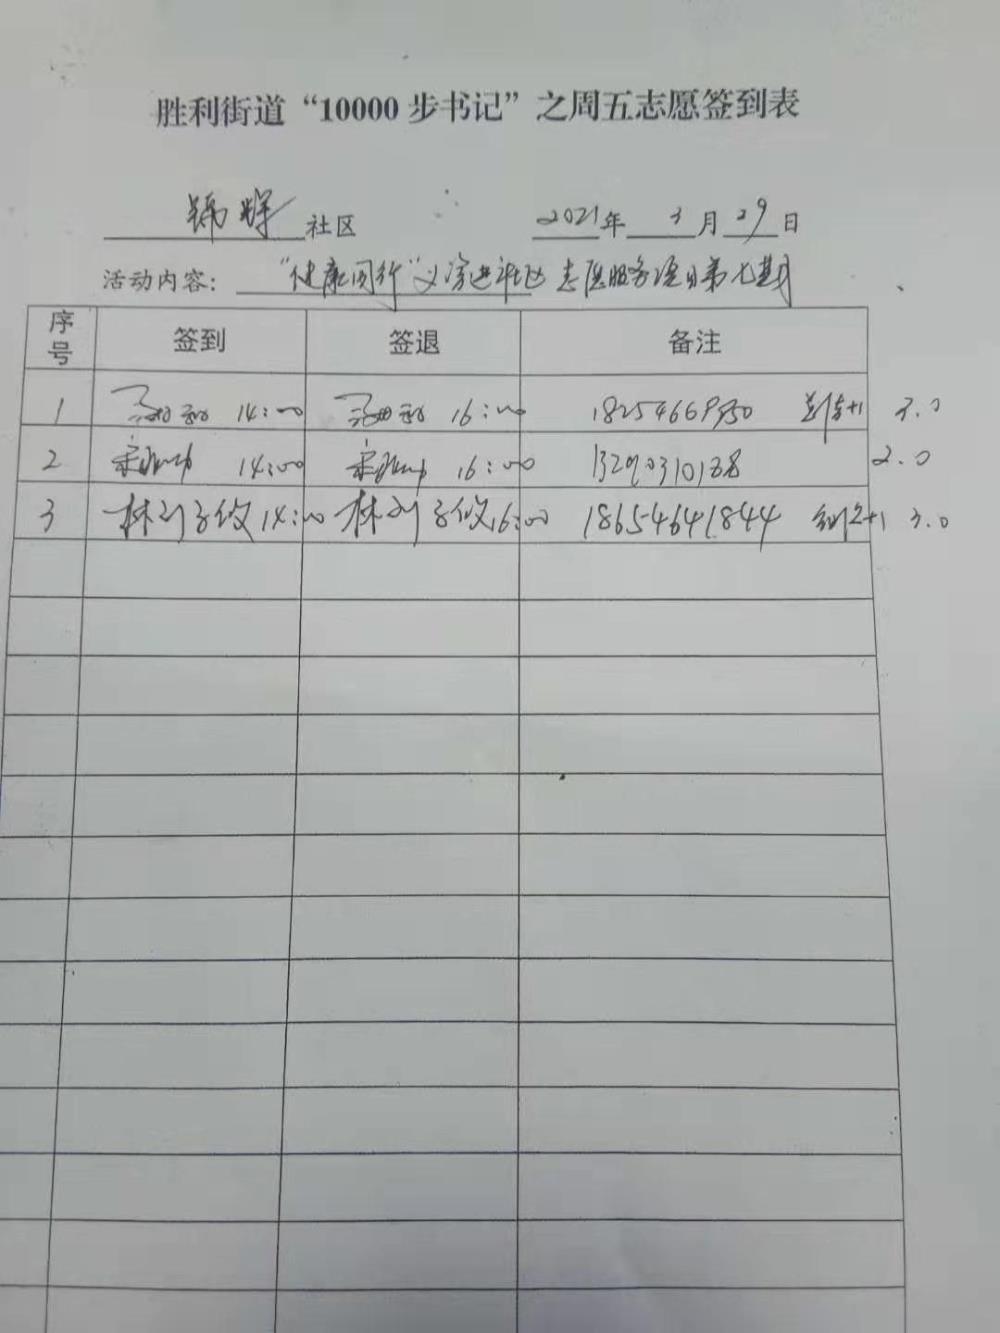 胜利街道“10000步书记”之周五志愿签到表
锦辉社区 2021年3月29日
活动内容：“健康同行”义诊进社区志愿服务项目第七期
序号 签到 签退 备注
1 14:00 16:00 3.0
2 14:00 16:00 13290310188 2.0
3 林刘子俊 14:00 林刘子俊 16:00 18654641844 +1 3.0